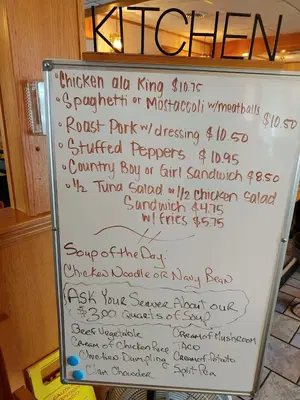 KITCHEN
• Chicken ala King $10.75
• Spaghetti or Mostaccoli w/meatballs $10.50
• Roast Pork w/dressing $10.50
• Stuffed Peppers $10.95
• Country Boy or Girl Sandwich $8.50
• 1/2 Tuna Salad or 1/2 Chicken Salad
Sandwich $4.75
w/ Fries $5.75
Soup of the Day:
Chicken Noodle OR Navy Bean
ASK YOUR SERVER ABOUT OUR
$3.00 QUARTS OF SOUP
Beef Vegetable
Cream of Mushroom
Cream of Chicken Rice
TACO
Chicken Dumpling
Cream of Potato
Clam Chowder
Split Pea